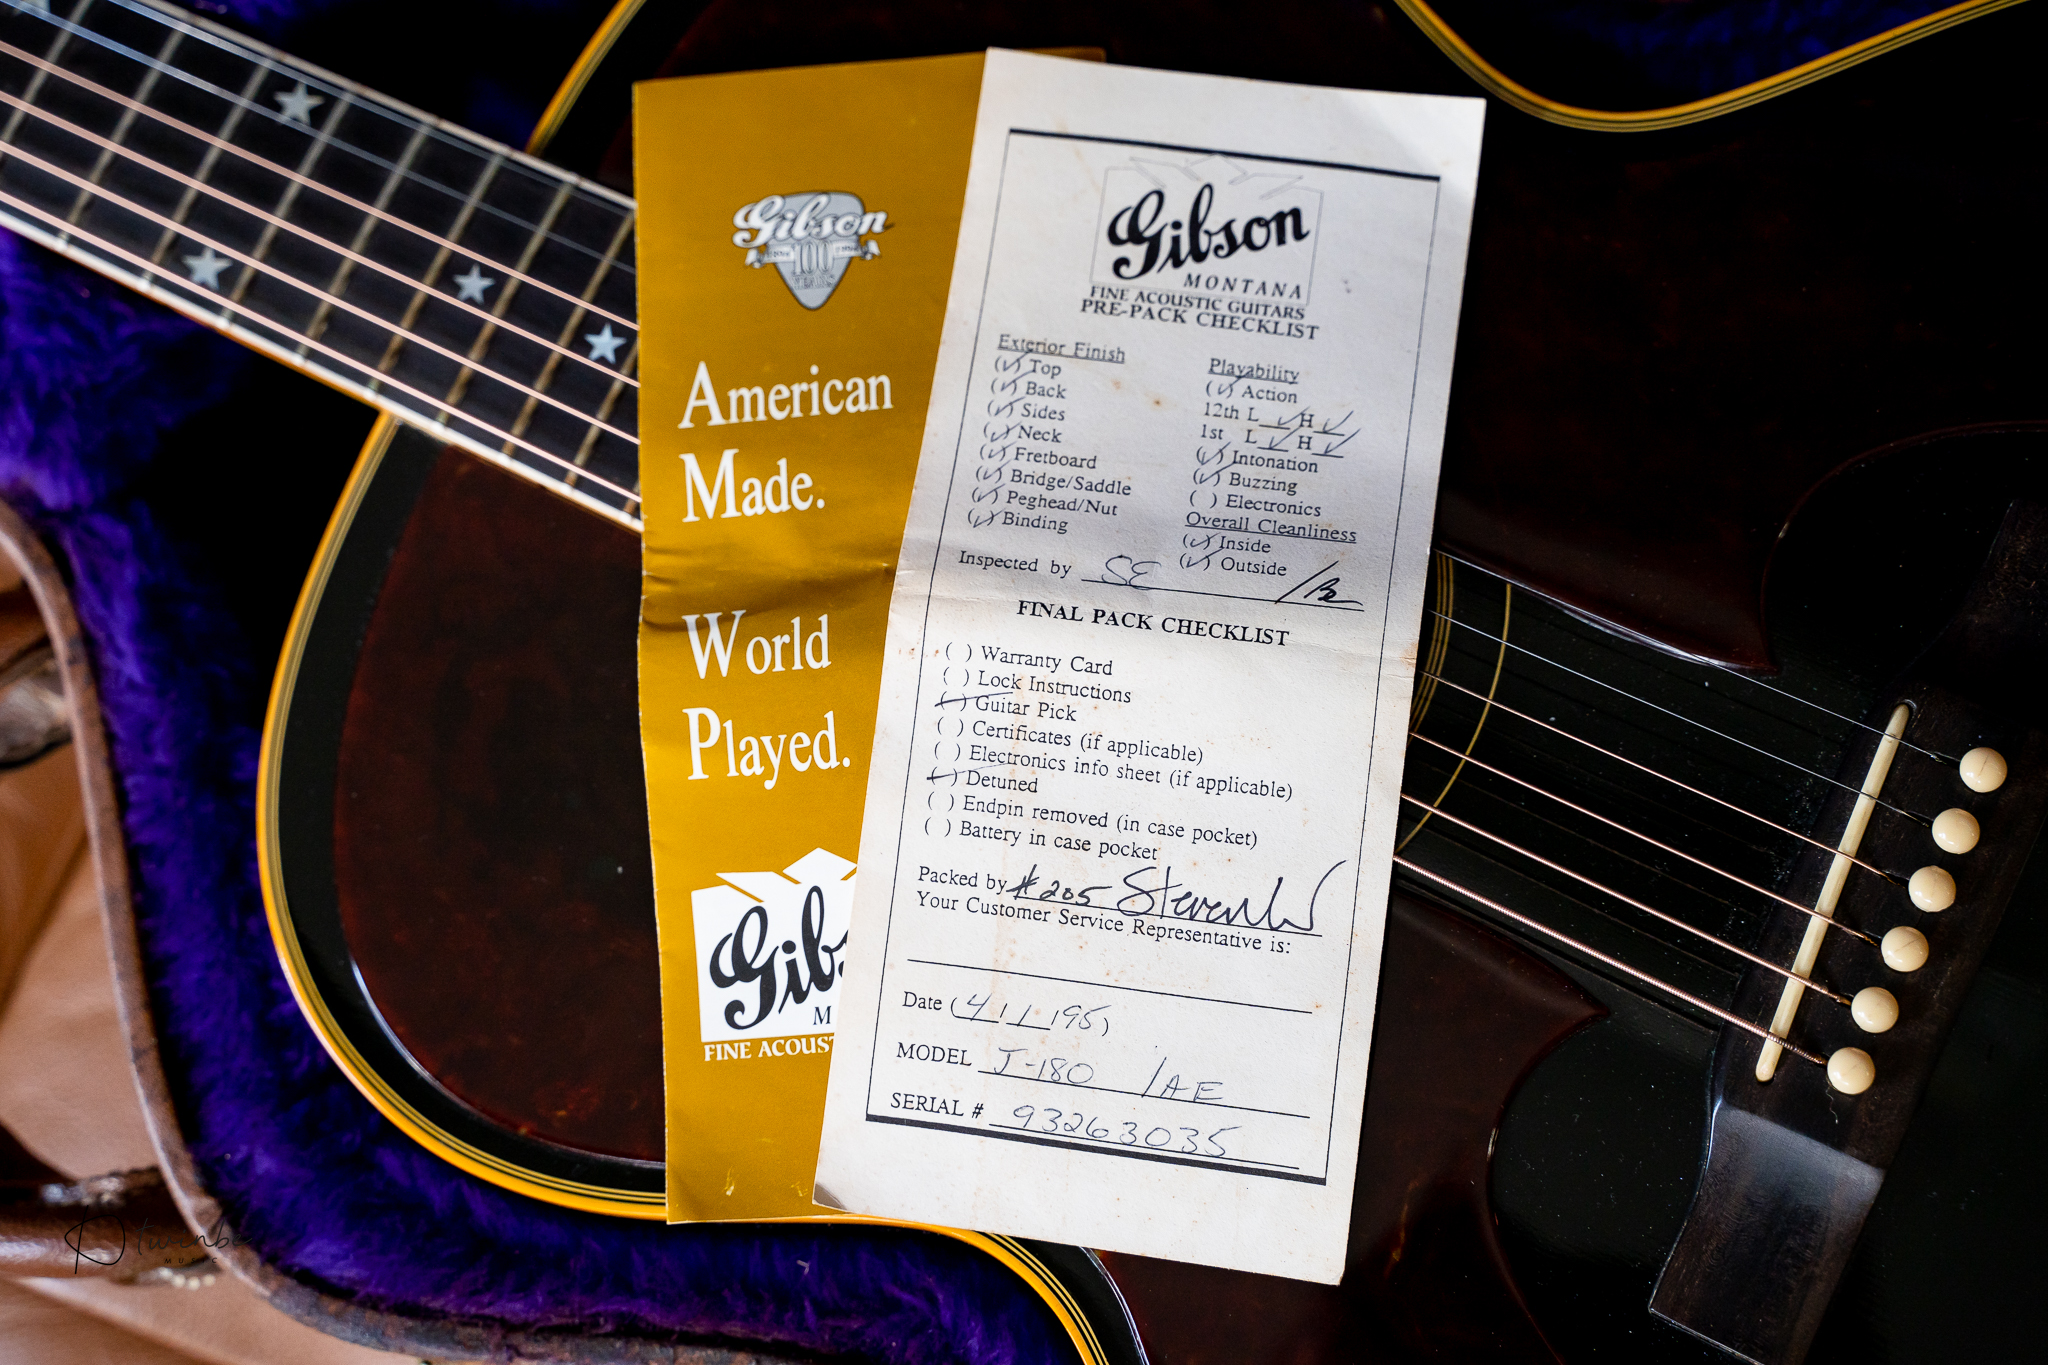 Gibson
100
YEARS
American
Made.
World
Played.
FINE ACOUST
Gibson
MONTANA
FINE ACOUSTIC GUITARS
PRE-PACK CHECKLIST
Exterior Finish
(✓) Top
(✓) Back
(✓) Sides
(✓) Neck
(✓) Fretboard
(✓) Bridge/Saddle
(✓) Peghead/Nut
(✓) Binding
Playability
(✓) Action
12th L ✓ H ✓
1st L ✓ H ✓
(✓) Intonation
(✓) Buzzing
( ) Electronics
Overall Cleanliness
(✓) Inside
(✓) Outside
Inspected by SE
FINAL PACK CHECKLIST
( ) Warranty Card
( ) Lock Instructions
( ) Guitar Pick
( ) Certificates (if applicable)
( ) Electronics info sheet (if applicable)
( ) Detuned
( ) Endpin removed (in case pocket)
( ) Battery in case pocket
Packed by #205 Steven
Your Customer Service Representative is:
Date (4/1/95)
MODEL J-180 /AE
SERIAL # 93263035
MUSIC